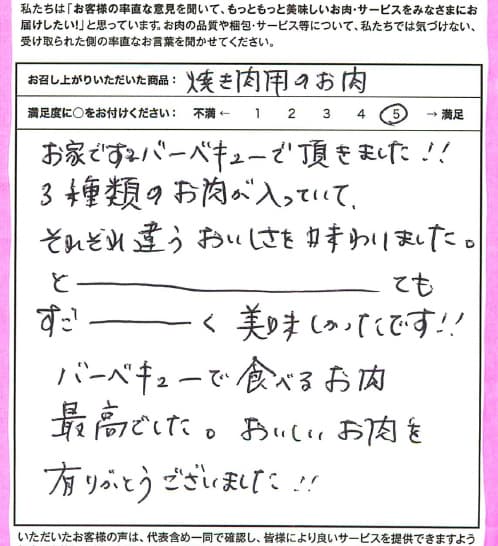 私たちは「お客様の率直な意見を聞いて、もっともっと美味しいお肉・サービスをみなさまにお
届けしたい!」と思っています。お肉の品質や梱包・サービス等について、私たちでは気づけない、
受け取られた側の率直なお言葉を聞かせてください。
お召し上がりいただいた商品： 焼き肉用のお肉
満足度に○をお付けください： 不満 ← 1 2 3 4 5 → 満足
お家でするバーベキューで頂きました!!
3種類のお肉が入っていて、
それぞれ違うおいしさを味わりました。
と――――――ても
すご―――く 美味しかったです!!
バーベキューで食べるお肉
最高でした。おいしいお肉を
有りがとうございました!!
いただいたお客様の声は、代表含め一同で確認し、皆様により良いサービスを提供できますよう